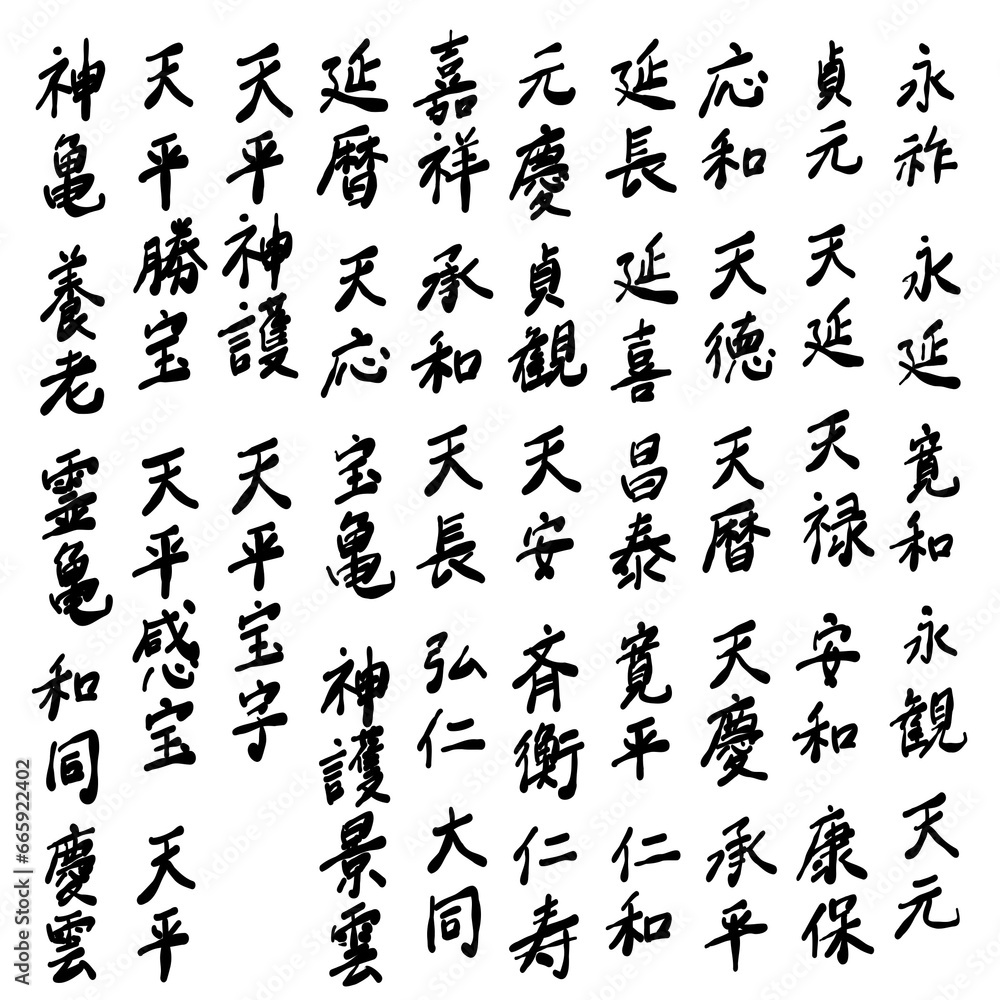 永祚 永延 寛和 永観 天元
貞元 天延 天禄 安和 康保
応和 天徳 天暦 天慶 承平
延長 延喜 昌泰 寛平 仁和
元慶 貞観 天安 斉衡 仁寿
嘉祥 承和 天長 弘仁 大同
延暦 天応 宝亀 神護景雲
天平神護 天平宝字
天平勝宝 天平感宝 天平
神亀 養老 霊亀 和同 慶雲
Adobe Stock | #665922402